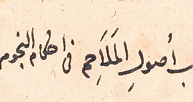 أصول الملاحم في احكام النجوم